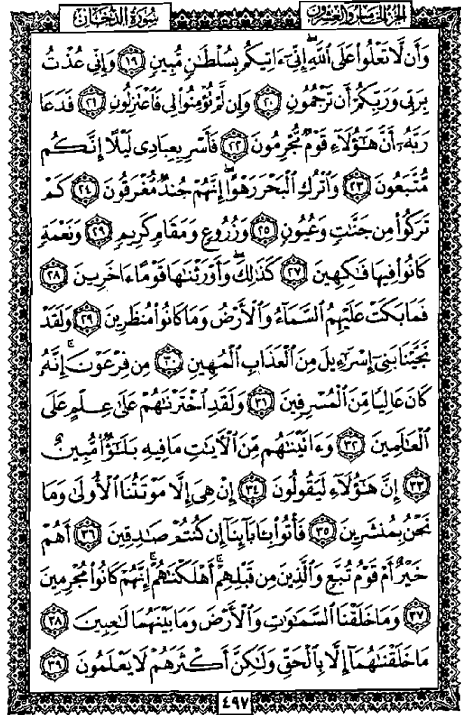 الجزء الخامس والعشرون سورة الدخان
وَأَن لَّا تَعْلُوا۟ عَلَى ٱللَّهِ إِنِّىٓ ءَاتِيكُم بِسُلْطَٰنٍ مُّبِينٍ ١٩ وَإِنِّى عُذْتُ
بِرَبِّى وَرَبِّكُمْ أَن تَرْجُمُونِ ٢٠ وَإِن لَّمْ تُؤْمِنُوا۟ لِى فَٱعْتَزِلُونِ ٢١ فَدَعَا
رَبَّهُۥٓ أَنَّ هَٰٓؤُلَآءِ قَوْمٌ مُّجْرِمُونَ ٢٢ فَأَسْرِ بِعِبَادِى لَيْلًا إِنَّكُم
مُّتَّبَعُونَ ٢٣ وَٱتْرُكِ ٱلْبَحْرَ رَهْوًا إِنَّهُمْ جُندٌ مُّغْرَقُونَ ٢٤ كَمْ
تَرَكُوا۟ مِن جَنَّٰتٍ وَعُيُونٍ ٢٥ وَزُرُوعٍ وَمَقَامٍ كَرِيمٍ ٢٦ وَنَعْمَةٍ
كَانُوا۟ فِيهَا فَٰكِهِينَ ٢٧ كَذَٰلِكَ وَأَوْرَثْنَٰهَا قَوْمًا ءَاخَرِينَ ٢٨
فَمَا بَكَتْ عَلَيْهِمُ ٱلسَّمَآءُ وَٱلْأَرْضُ وَمَا كَانُوا۟ مُنظَرِينَ ٢٩ وَلَقَدْ
نَجَّيْنَا بَنِىٓ إِسْرَٰٓءِيلَ مِنَ ٱلْعَذَابِ ٱلْمُهِينِ ٣٠ مِن فِرْعَوْنَ إِنَّهُۥ
كَانَ عَالِيًا مِّنَ ٱلْمُسْرِفِينَ ٣١ وَلَقَدِ ٱخْتَرْنَٰهُمْ عَلَىٰ عِلْمٍ عَلَى
ٱلْعَٰلَمِينَ ٣٢ وَءَاتَيْنَٰهُم مِّنَ ٱلْءَايَٰتِ مَا فِيهِ بَلَٰٓؤٌا۟ مُّبِينٌ
٣٣ إِنَّ هَٰٓؤُلَآءِ لَيَقُولُونَ ٣٤ إِنْ هِىَ إِلَّا مَوْتَتُنَا ٱلْأُولَىٰ وَمَا
نَحْنُ بِمُنشَرِينَ ٣٥ فَأْتُوا۟ بِـَٔابَآئِنَآ إِن كُنتُمْ صَٰدِقِينَ ٣٦ أَهُمْ
خَيْرٌ أَمْ قَوْمُ تُبَّعٍ وَٱلَّذِينَ مِن قَبْلِهِمْ أَهْلَكْنَٰهُمْ إِنَّهُمْ كَانُوا۟ مُجْرِمِينَ
٣٧ وَمَا خَلَقْنَا ٱلسَّمَٰوَٰتِ وَٱلْأَرْضَ وَمَا بَيْنَهُمَا لَٰعِبِينَ ٣٨
مَا خَلَقْنَٰهُمَآ إِلَّا بِٱلْحَقِّ وَلَٰكِنَّ أَكْثَرَهُمْ لَا يَعْلَمُونَ ٣٩
٤٩٧